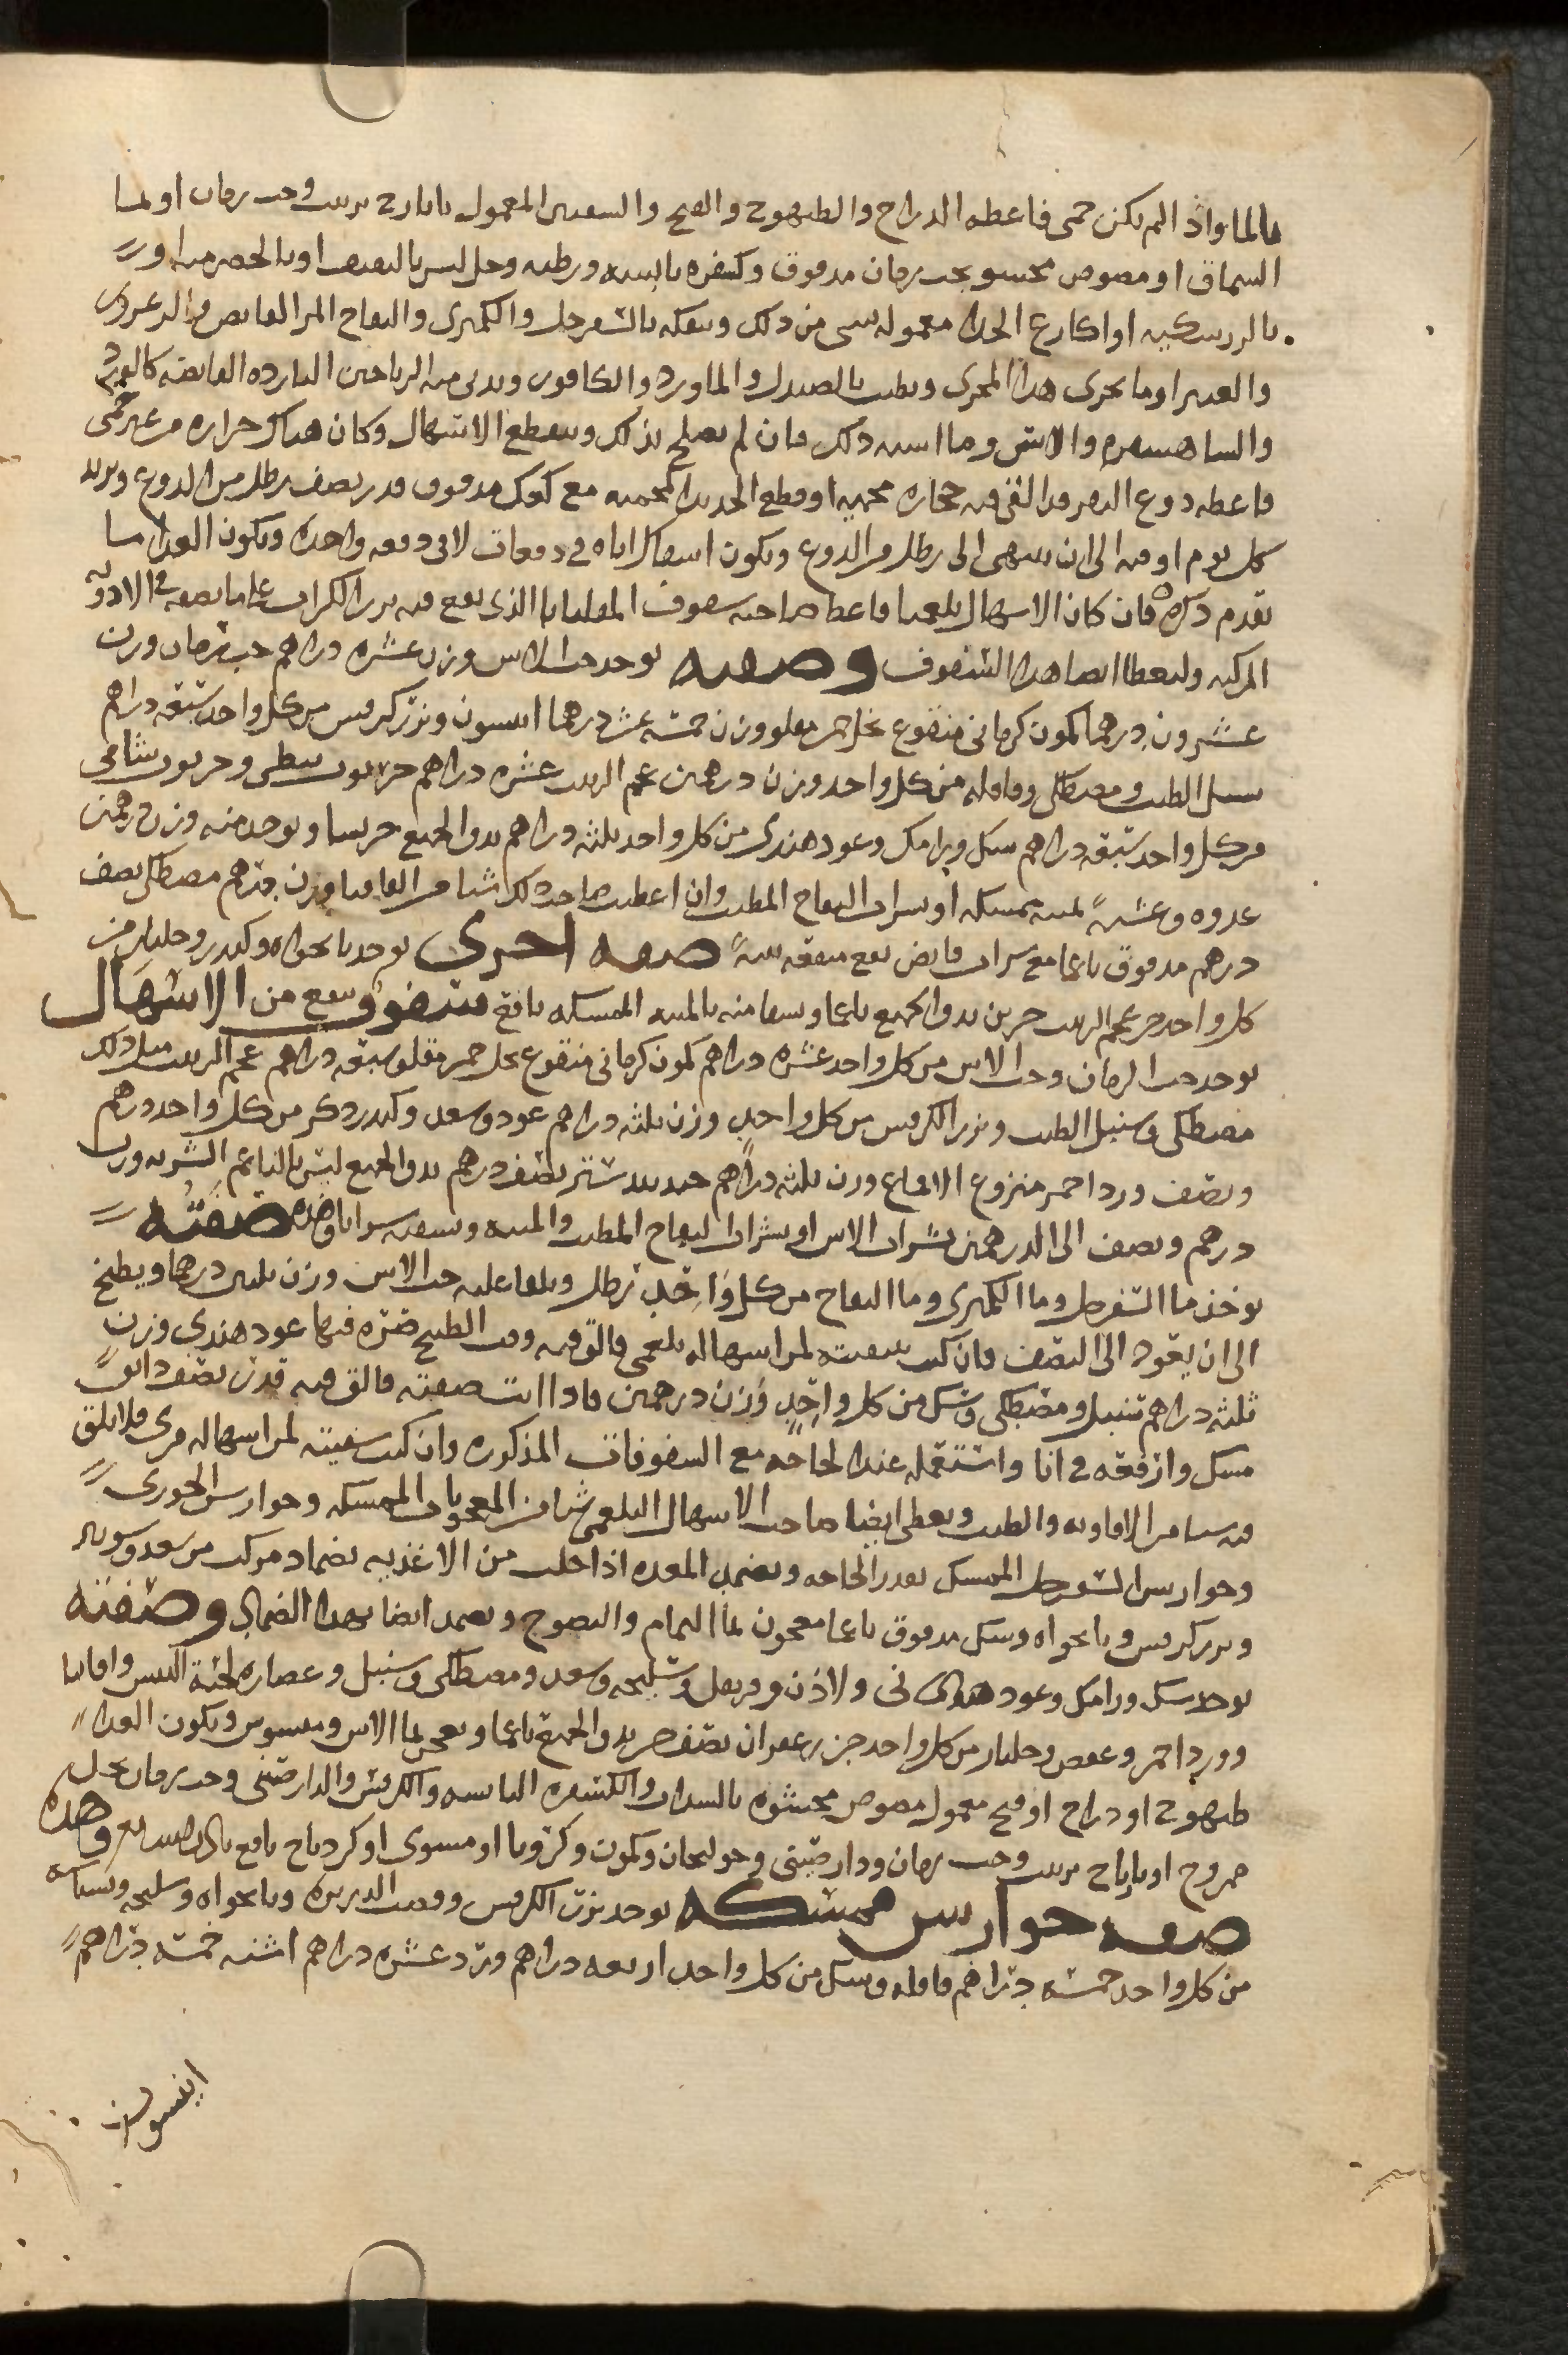 بالما واذا لم يكن حمى فاعطه الدراج والطيهوج والقبج والسفنين المعمول بابازج بزبيب وحب رمان او بما
السماق او مصوص محشو بحب رمان مدقوق وكسفره يابسه ورطبه وخل ليس بالثقيف او بالحصرميه او
بالزرشكيه او اكارع الجدا معموله بشي من ذلك وينقله بالسفرجل والكمثرى والتفاح المز القابض والزعرور
والغبيرا وما يجرى هذا المجرى ويطيب بالصندل والماورد والكافور ويدنى منه الرياحين البارده القابضه كالورد
والشاهسفرم والاس وما اشبه ذلك فان لم يصلح بذلك وينقطع الاسهال وكان هناك حراره من غير حمى
فاعطه دوغ البقر قد القى فيه حجاره محميه او قطع الحديد المحميه مع كعك مدقوق قدر نصف رطل من الدوغ وتزيد
كل يوم اوقيه الى ان ينتهى الى رطل من الدوغ ويكون اسقاك اياه في دفعات لا في دفعه واحده ويكون الغدا ما
تقدم ذكره فان كان الاسهال بلغميا فاعط صاحبه سفوف المقلياثا الذى يقع فيه بزر الكراث على ما نصفه في الادويه
المركبه وليعطا ايضا هذا السفوف وصفته يوخذ حب الاس وزن عشره دراهم حب رمان وزن
عشرون درهما كمون كرمانى منقوع بخل خمر مقلو وزن خمسه عشر درهما انيسون وبزر كرفس من كل واحد سبعه دراهم
سنبل الطيب ومصطكى وقاقله من كل واحد وزن درهمين عجم الزبيب عشره دراهم خرنوب نبطى وخرنوب شامى
من كل واحد سبعه دراهم سك ورامك وعود هندى من كل واحد ثلثه دراهم يدق الجميع جريشا ويوخذ منه وزن درهمين
غدوه وعشيه بميبه ممسكه او بشراب التفاح المطيب وان اعطيت صاحب ذلك شيا من القاقيا وزن درهم مصطكى نصف
درهم مدقوق ناعما مع شراب قابض نفع منفعه بينه صفه اخرى يوخذ نانخواه وكندر وجلنار من
كل واحد جزو عجم الزبيب جزين يدق الجميع ناعما ويسقا منه بالميبه الممسكه نافع سفوف ينفع من الاسهال
يوخذ حب الرمان وحب الاس من كل واحد عشره دراهم كمون كرمانى منقوع بخل خمر مقلو سبعه دراهم عجم الزبيب مثل ذلك
مصطكى وسنبل الطيب وبزر الكرفس من كل واحد وزن ثلثه دراهم عود وسعد وكندر ذكر من كل واحد درهم
ونصف ورد احمر منزوع الاقماع وزن ثلثه دراهم جندبيدستر نصف درهم يدق الجميع ليس بالناعم الشربه وزن
درهم ونصف الى الدرهمين بشراب الاس او بشراب التفاح المطيب والميبه وتسقيه شرابا هذه صفته
يوخذ ما السفرجل وما الكمثرى وما التفاح من كل واحد رطل ويلقا عليه حب الاس وزن ثلثين درهما ويطبخ
الى ان يعود الى النصف فان كنت تسقيه لمن اسهاله بلغمى فالق فيه وقت الطبخ صره فيها عود هندى وزن
ثلثه دراهم سنبل ومصطكى وسك من كل واحد وزن درهمين فاذا انت صفيته فالق فيه قدر نصف دانق
مسك وارفعه في انا واستعمله عند الحاجه مع السفوفات المذكوره وان كنت تسقيته لمن اسهاله مرى فلا تلق
فيه شيا من الافاويه والطيب ويعطى ايضا صاحب الاسهال البلغمى شيا من المعجونات الممسكه وجوارس الخوزى
وجوارس السفرجل الممسك بقدر الحاجه ويضمد المعده اذا خلت من الاغذيه بضماد مركب من سعد وسويق
وبزر كرفس ونانخواه وسك مدقوق ناعما معجون بما النمام والنضوح ويضمد ايضا بهذا الضماد وصفته
يوخذ سك ورامك وعود هندى نى ولاذن وقرنفل وسليخه وسعد ومصطكى وسنبل وعصاره لحيه التيس واقاقيا
وورد احمر وعفص وجلنار من كل واحد جزء زعفران نصف جز يدق الجميع ناعما ويعجن بما الاس وميسوس ويكون الغدا
طيهوج او دراج او قبج معمول مصوص محشوه بالسداب والكسفره اليابسه والكرفس والدارصينى وحب رمان بخل
ممزوج او زيرباج بزبيب وحب رمان ودارصينى وخولنجان وكمون وكرويا او مشوى او كردناج نافع وهذه
صفه جوارس ممسكه يوخذ بزر الكرفس وقصب الذريره ونانخواه وسليخه وبسباسه
من كل واحد خمسه دراهم قاقله وسك من كل واحد اربعه دراهم ورد عشره دراهم اشنه خمسه دراهم
انيسون